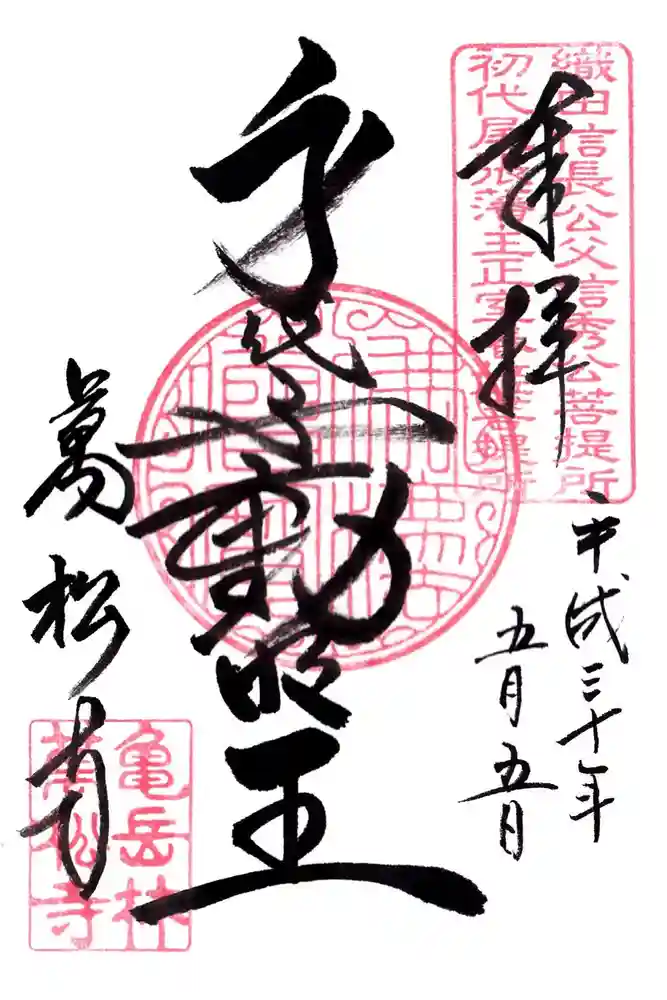 織田信長公父信秀公菩提所
初代尾張藩主正室春姫
奉拝
平成三十年
五月五日
身代不動明王
萬松寺
亀岳林
萬松寺